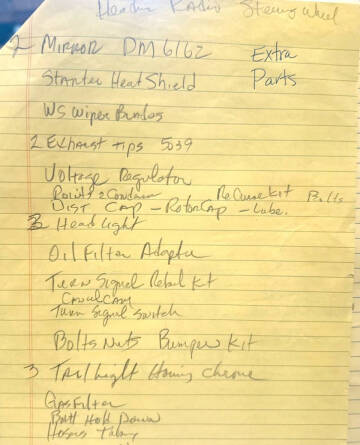 Header Radio Steering Wheel
2 Mirror DM6162 Extra
Starter Heat Shield Parts
WS Wiper Blades
2 Exhaust tips 5039
Voltage Regulator
Points & Conden Kit Bolts
Dist Cap - Rotor Cap - Lube.
Head Light
Oil Filter Adapter
Turn Signal Rebuil Kit
Turn Signal Switch
Bolts Nuts Bumper Kit
3 Tail Light Chrome
Gas Filter
Batt Hold Down